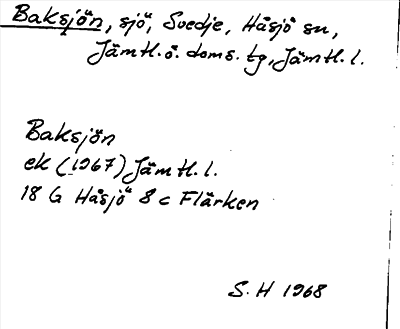 Baksjön, sjö, Svedje, Håsjö sn,
Jämtl. ö. doms. tg, Jämtl. l.
Baksjön
ek (1967) Jämtl. l.
18 G Håsjö 8 c Flärken
S. H 1968